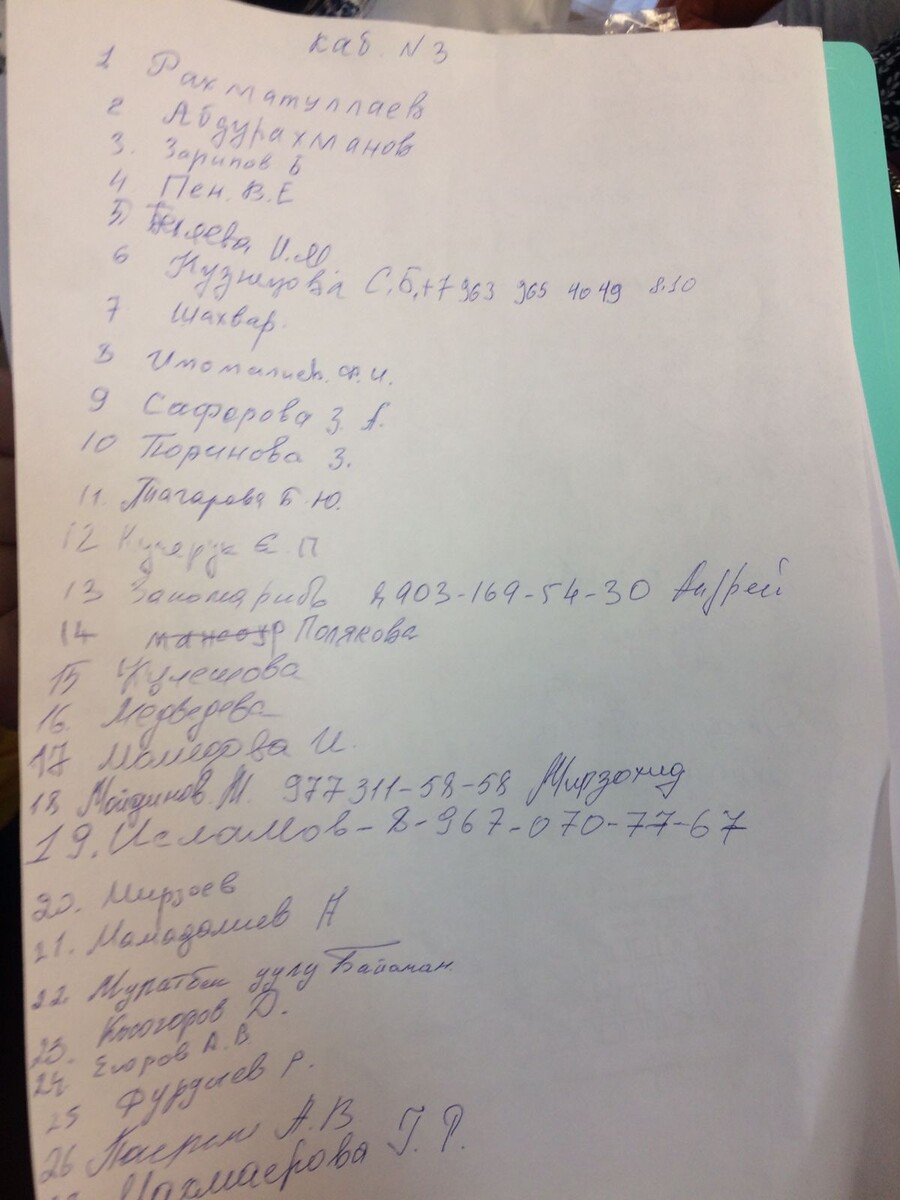 каб. N 3
1 Рахматуллаев
2 Абдурахманов
3. Зарипов Б
4 Пен. В.Е
5) Беляева И.М
6 Кузнецова С.Б, +7 963 965 40 49 8.10
7 Шахвар.
8 Имомалиев. Ф.И.
9 Сафорова З. А.
10 Тюринова З.
11. Тагарова Б.Ю.
12 Кучерук Е П
13 903-169-54-30 Андрей
14 Полякова
15 Кулешова
16. Медведева
17 И.
18 Мойдинов. М. 977 311-58-58 Мирзохид
19. Исламов - 8-967-070-77-67
20. Мирзоев
21. Мамадалиев А
22. Муратбек уулу
23. Д.
24 Егоров А.В
25 Фурдуев Р.
26 А.В
Г. Р.